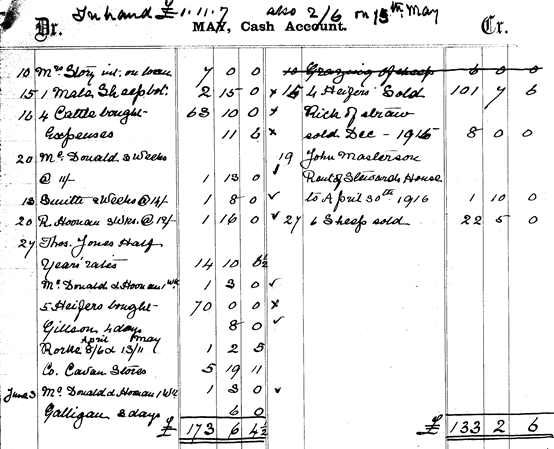 In hand £1.11.7 also 2/6 on 15th May
Dr. MAY, Cash Account. Cr.
10 Mrs Story int. on loan 7 0 0
15 1 Male Sheep bot. 2 15 0 x
16 4 Cattle bought 63 10 0 x
Expenses 11 6 x
20 McDonald 3 Weeks
@ 11/- 1 13 0 ✓
13 Smith 2 Weeks @ 14/- 1 8 0 ✓
20 R. Hoonan 3 Wks. @ 12/- 1 16 0 ✓
27 Thos. Jones Half
Years rates 14 10 6½
McDonald & Hoonan 1 Wk 1 3 0 ✓
5 Heifers bought 70 0 0 x
Gillson 4 days 8 0 ✓
April May
Rorke 8/6 & 13/11 1 2 5
Co. Cavan Stores 5 19 11
June 3 McDonald & Hoonan 1 Wk 1 3 0 ✓
Galligan 3 days 6 0
£ 173 6 4½
10 Grazing of sheep 6 0 0
15 4 Heifers Sold 101 7 6
Rick of straw
sold Dec - 1915 8 0 0
19 John Masterson
Rent of Stewards House
to April 30th 1916 1 10 0
27 6 Sheep sold 22 5 0
£ 133 2 6